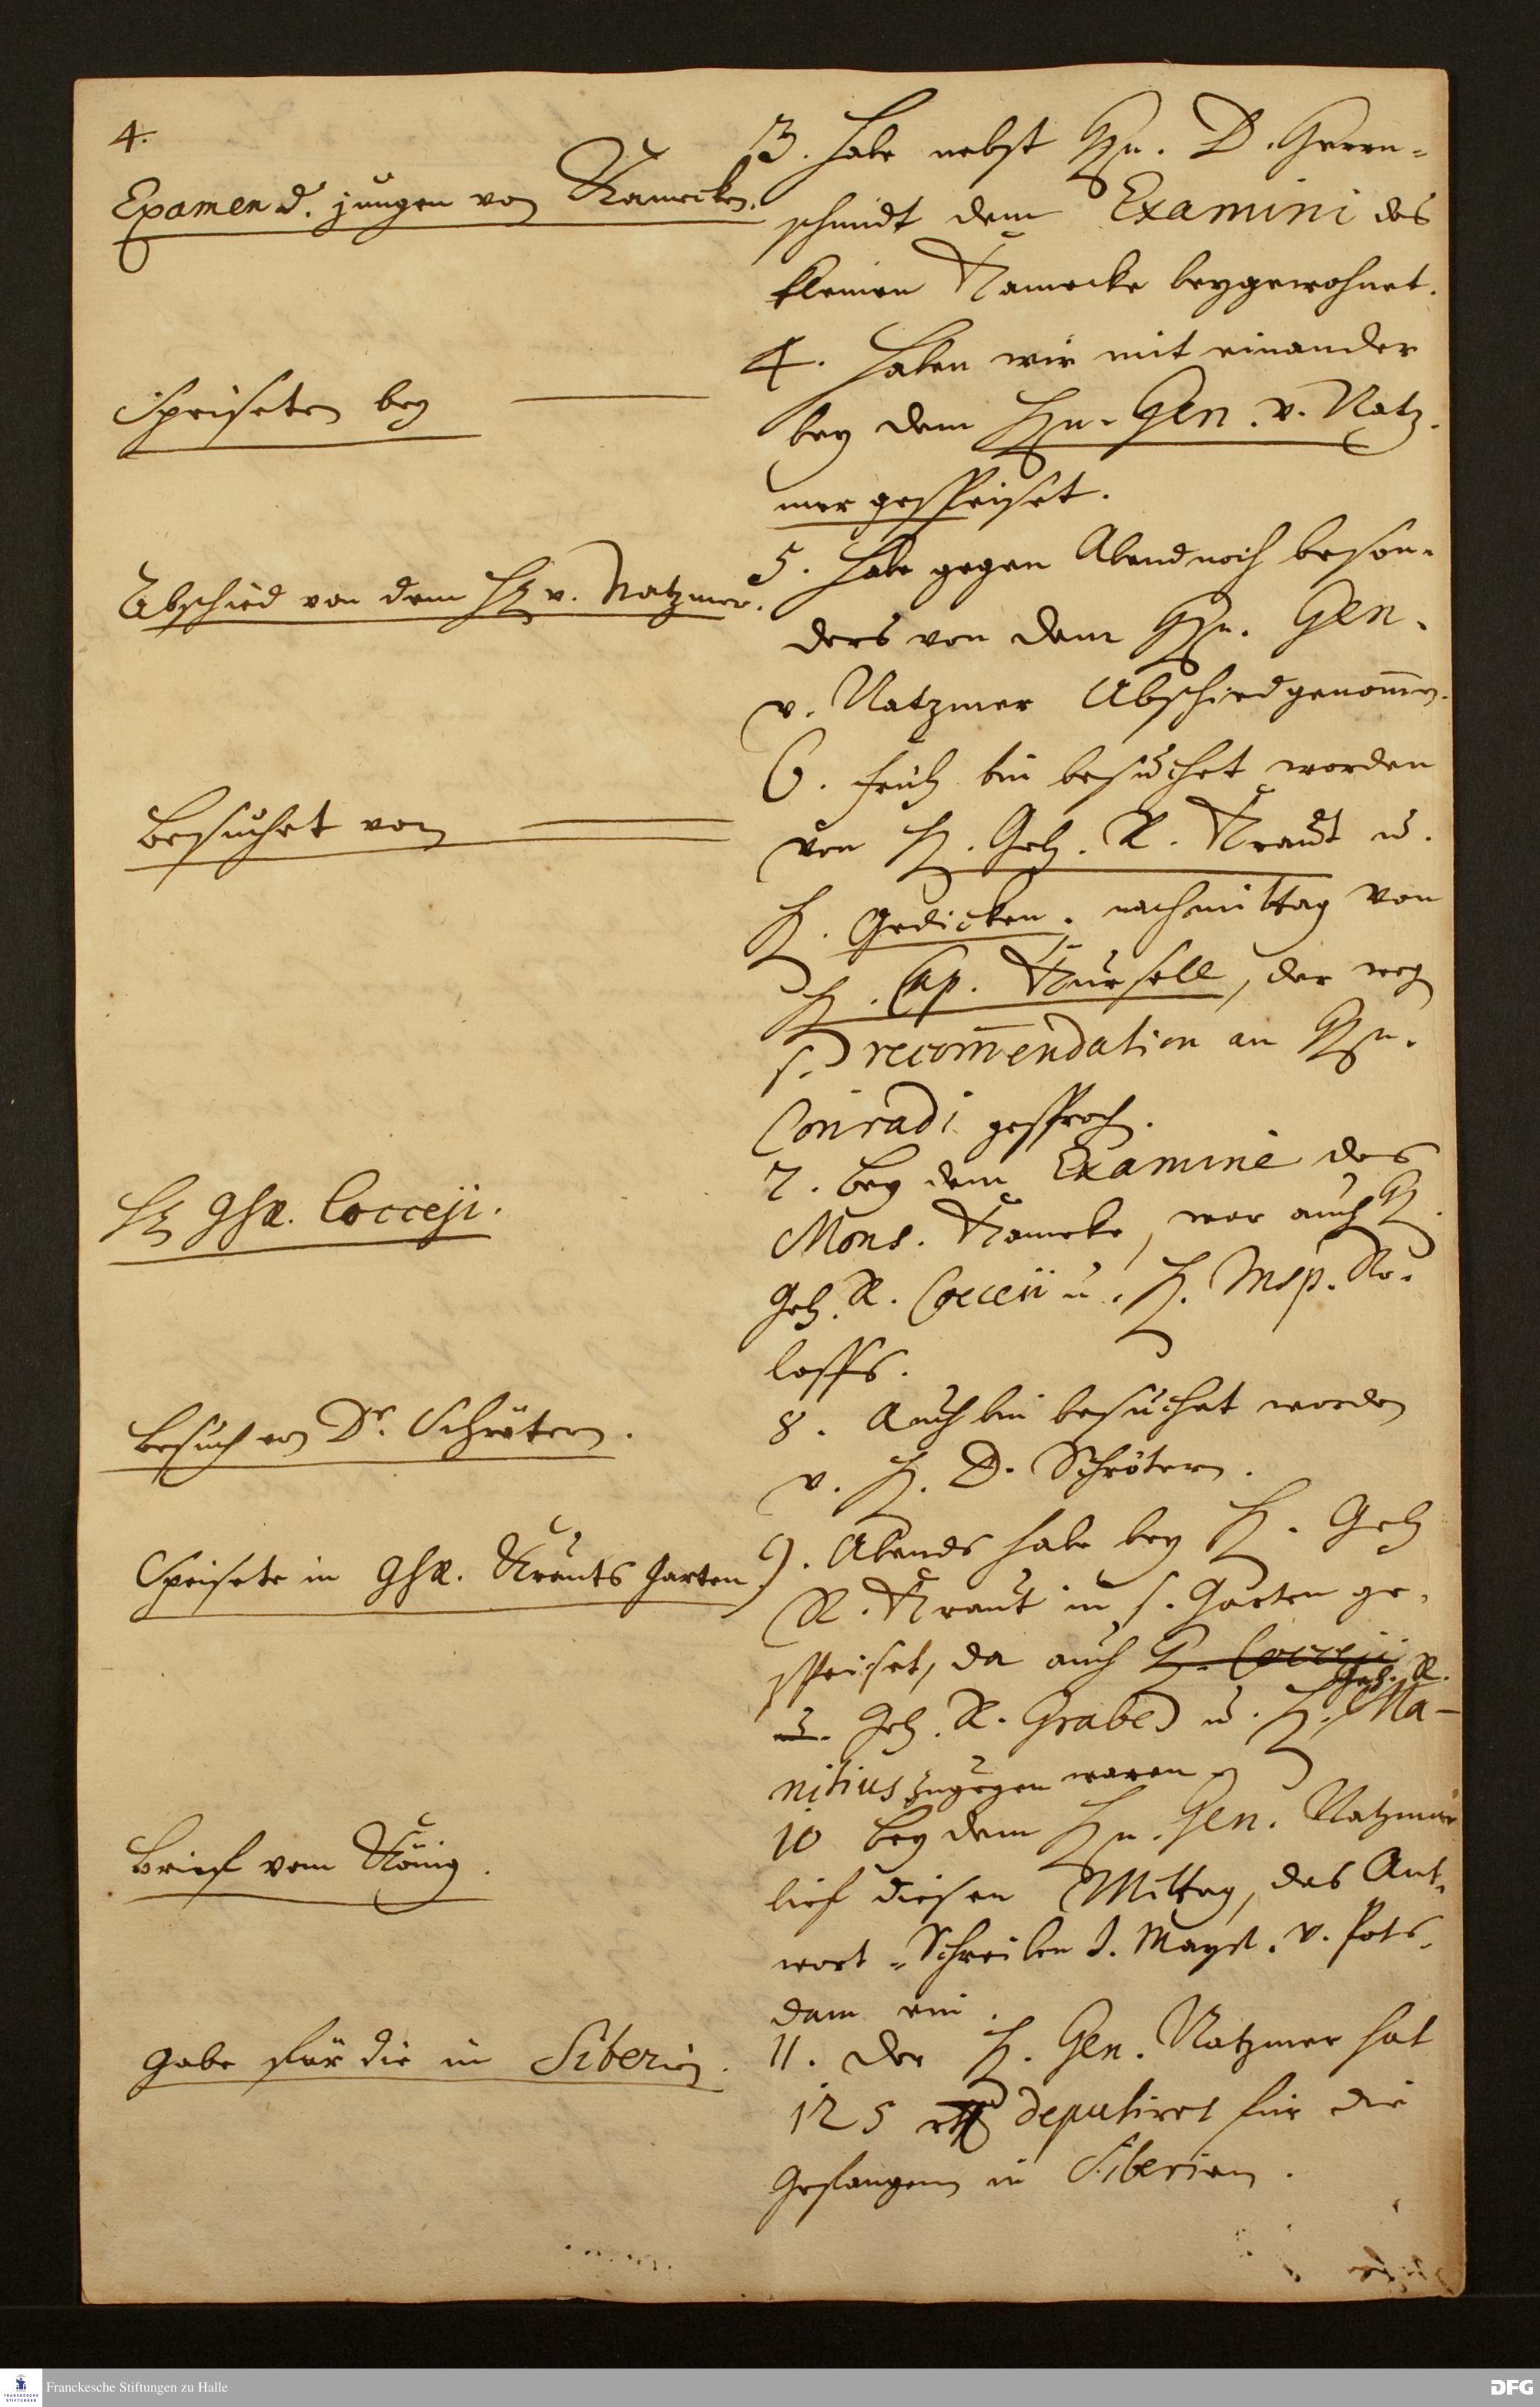 4.
Examen d. jungen von Kamecken.
3. Habe nebst Hn. D. Herrn-
schmidt dem Examini des
kleinen Kamecke beygewohnet.
Speiseten bey
4. Haben wir mit einander
bey dem Hn. Gen. v. Natz-
mer gespeiset.
Abschied von dem H. v. Natzmer.
5. Habe gegen Abend noch beson-
ders von dem Hn. Gen.
v. Natzmer Abschied genom̄en.
Besuchet von
6. Früh bin besuchet worden
von H. Geh. R. Kraut u.
H. Gedicken. nachmittag von
H. Cap. Kursell, der weg
s. recom̄endation an Hn.
Conradi gesproch.
H. GhR. Cocceji.
7. Bey dem Examine des
Mons. Kameke, war auch H.
Geh. R. Cocceii u. H. Insp. Ro-
loffs.
Besuch von Dr. Schrötern.
8. Auch bin besuchet worden
v. H. D. Schrötern.
Speisete in GhR. Krauts Garten
9. Abends habe bey H. Geh
R. Kraut in s. Garten ge-
speiset, da auch H. Cocceji
u. Geh. R. Grabe u. H. Geh. R. Ma-
nitius zugegen waren.
Brief vom König.
10 Bey dem Hn. Gen. Natzmer
lief diesen Mittag, das Ant-
wort-Schreiben I. Mayst. v. Pots-
dam ein.
Gabe für die in Siberien.
11. Der H. Gen. Natzmer hat
125 rthl deputiret für die
Gefangene in Siberien.
Franckesche Stiftungen zu Halle
FRANCKESCHE STIFTUNGEN
DFG